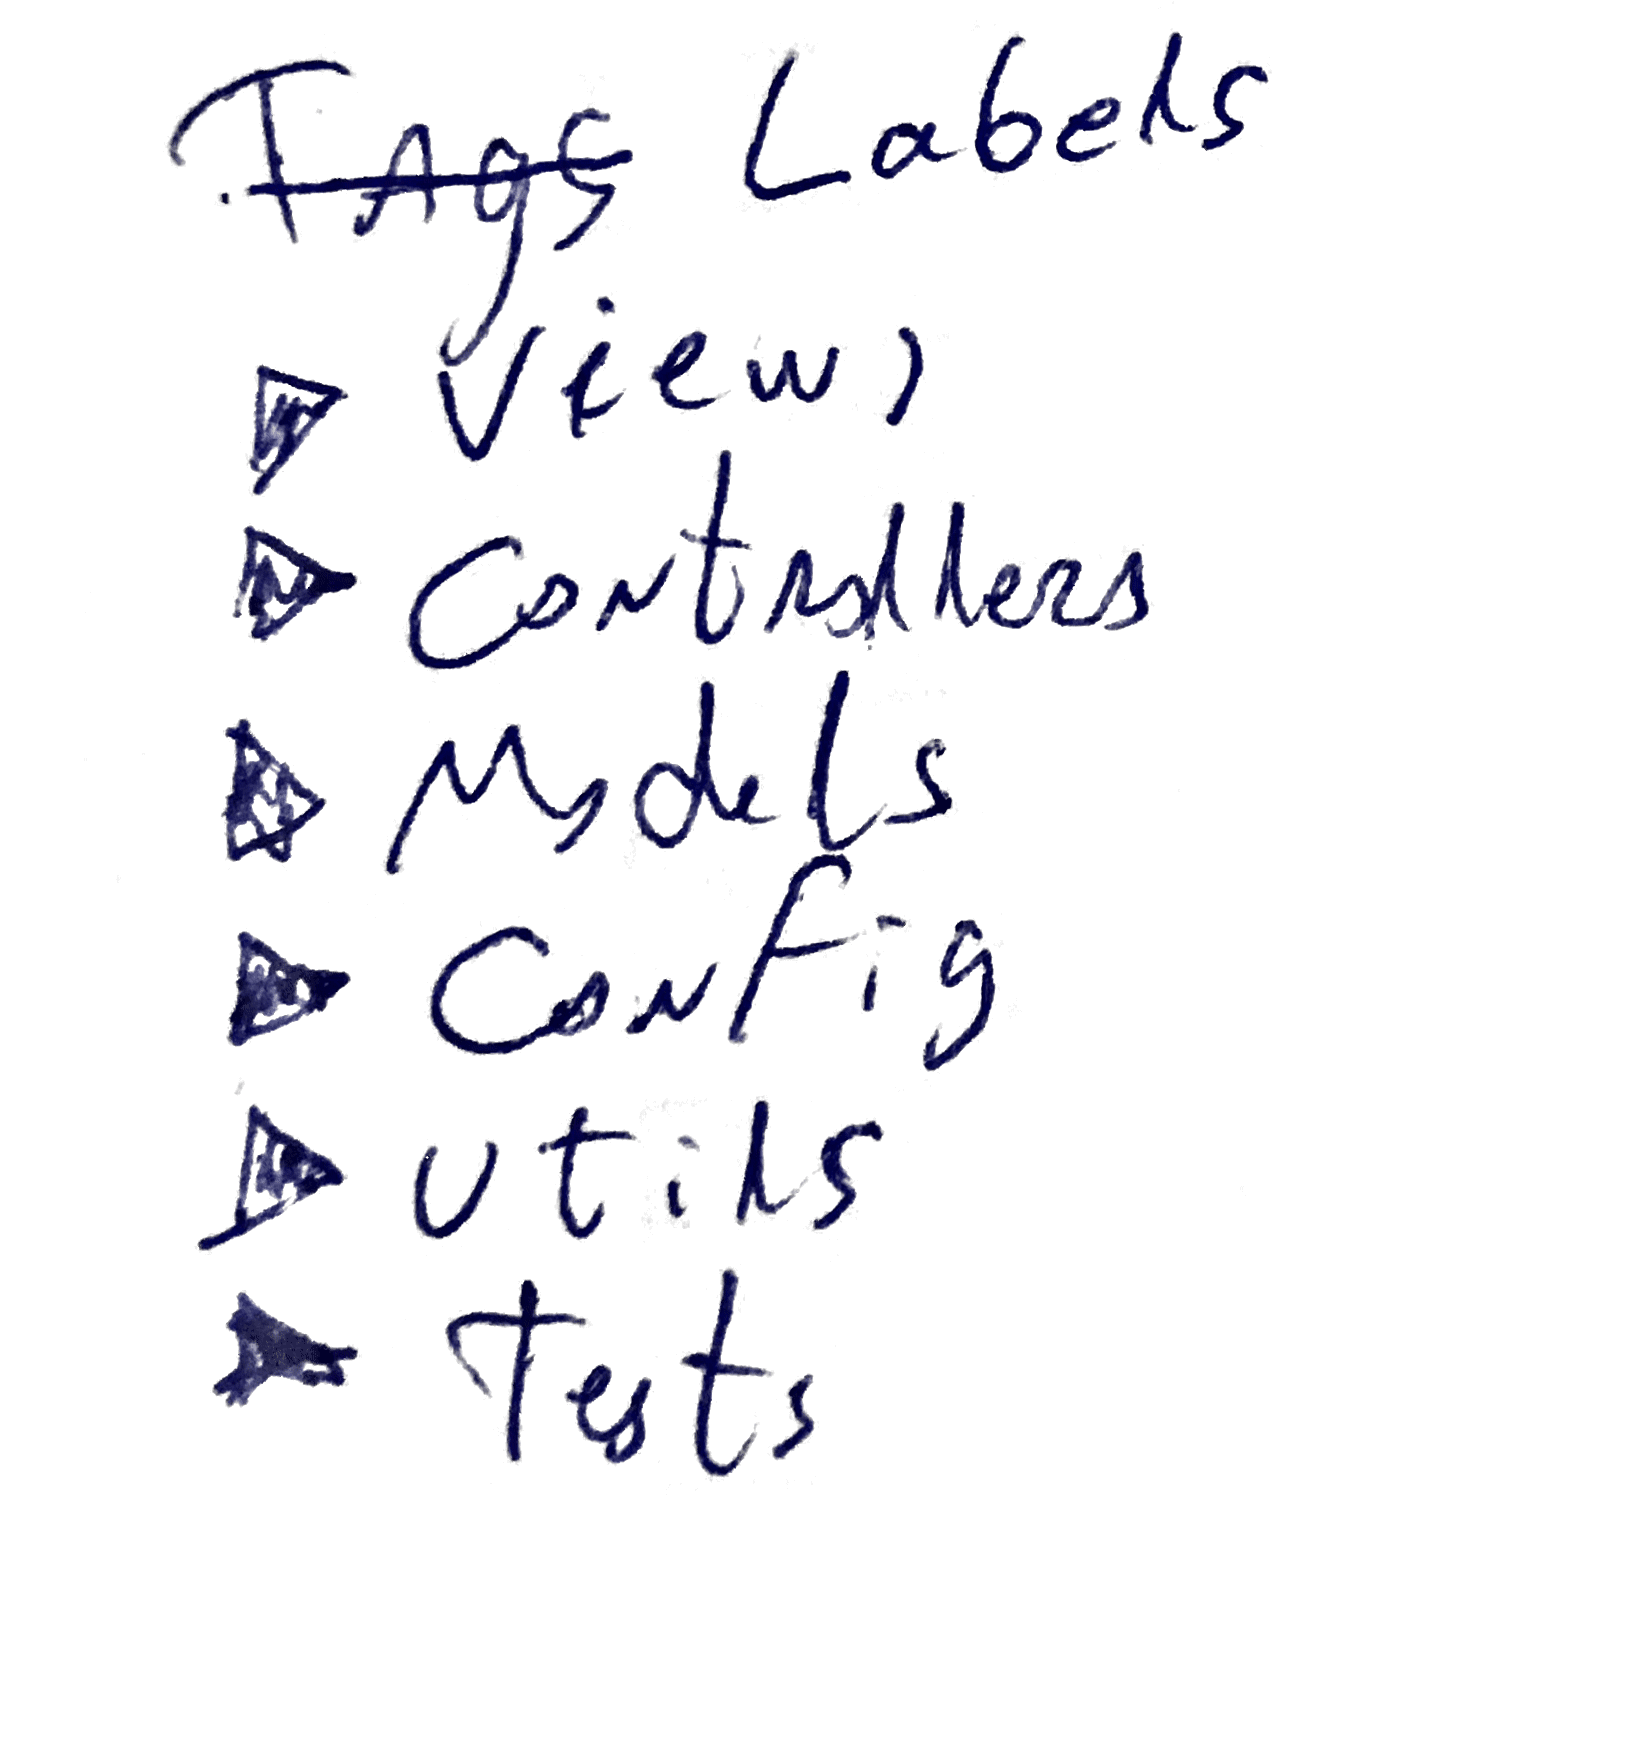 Tags Labels
Views
Controllers
Models
Config
Utils
Tests